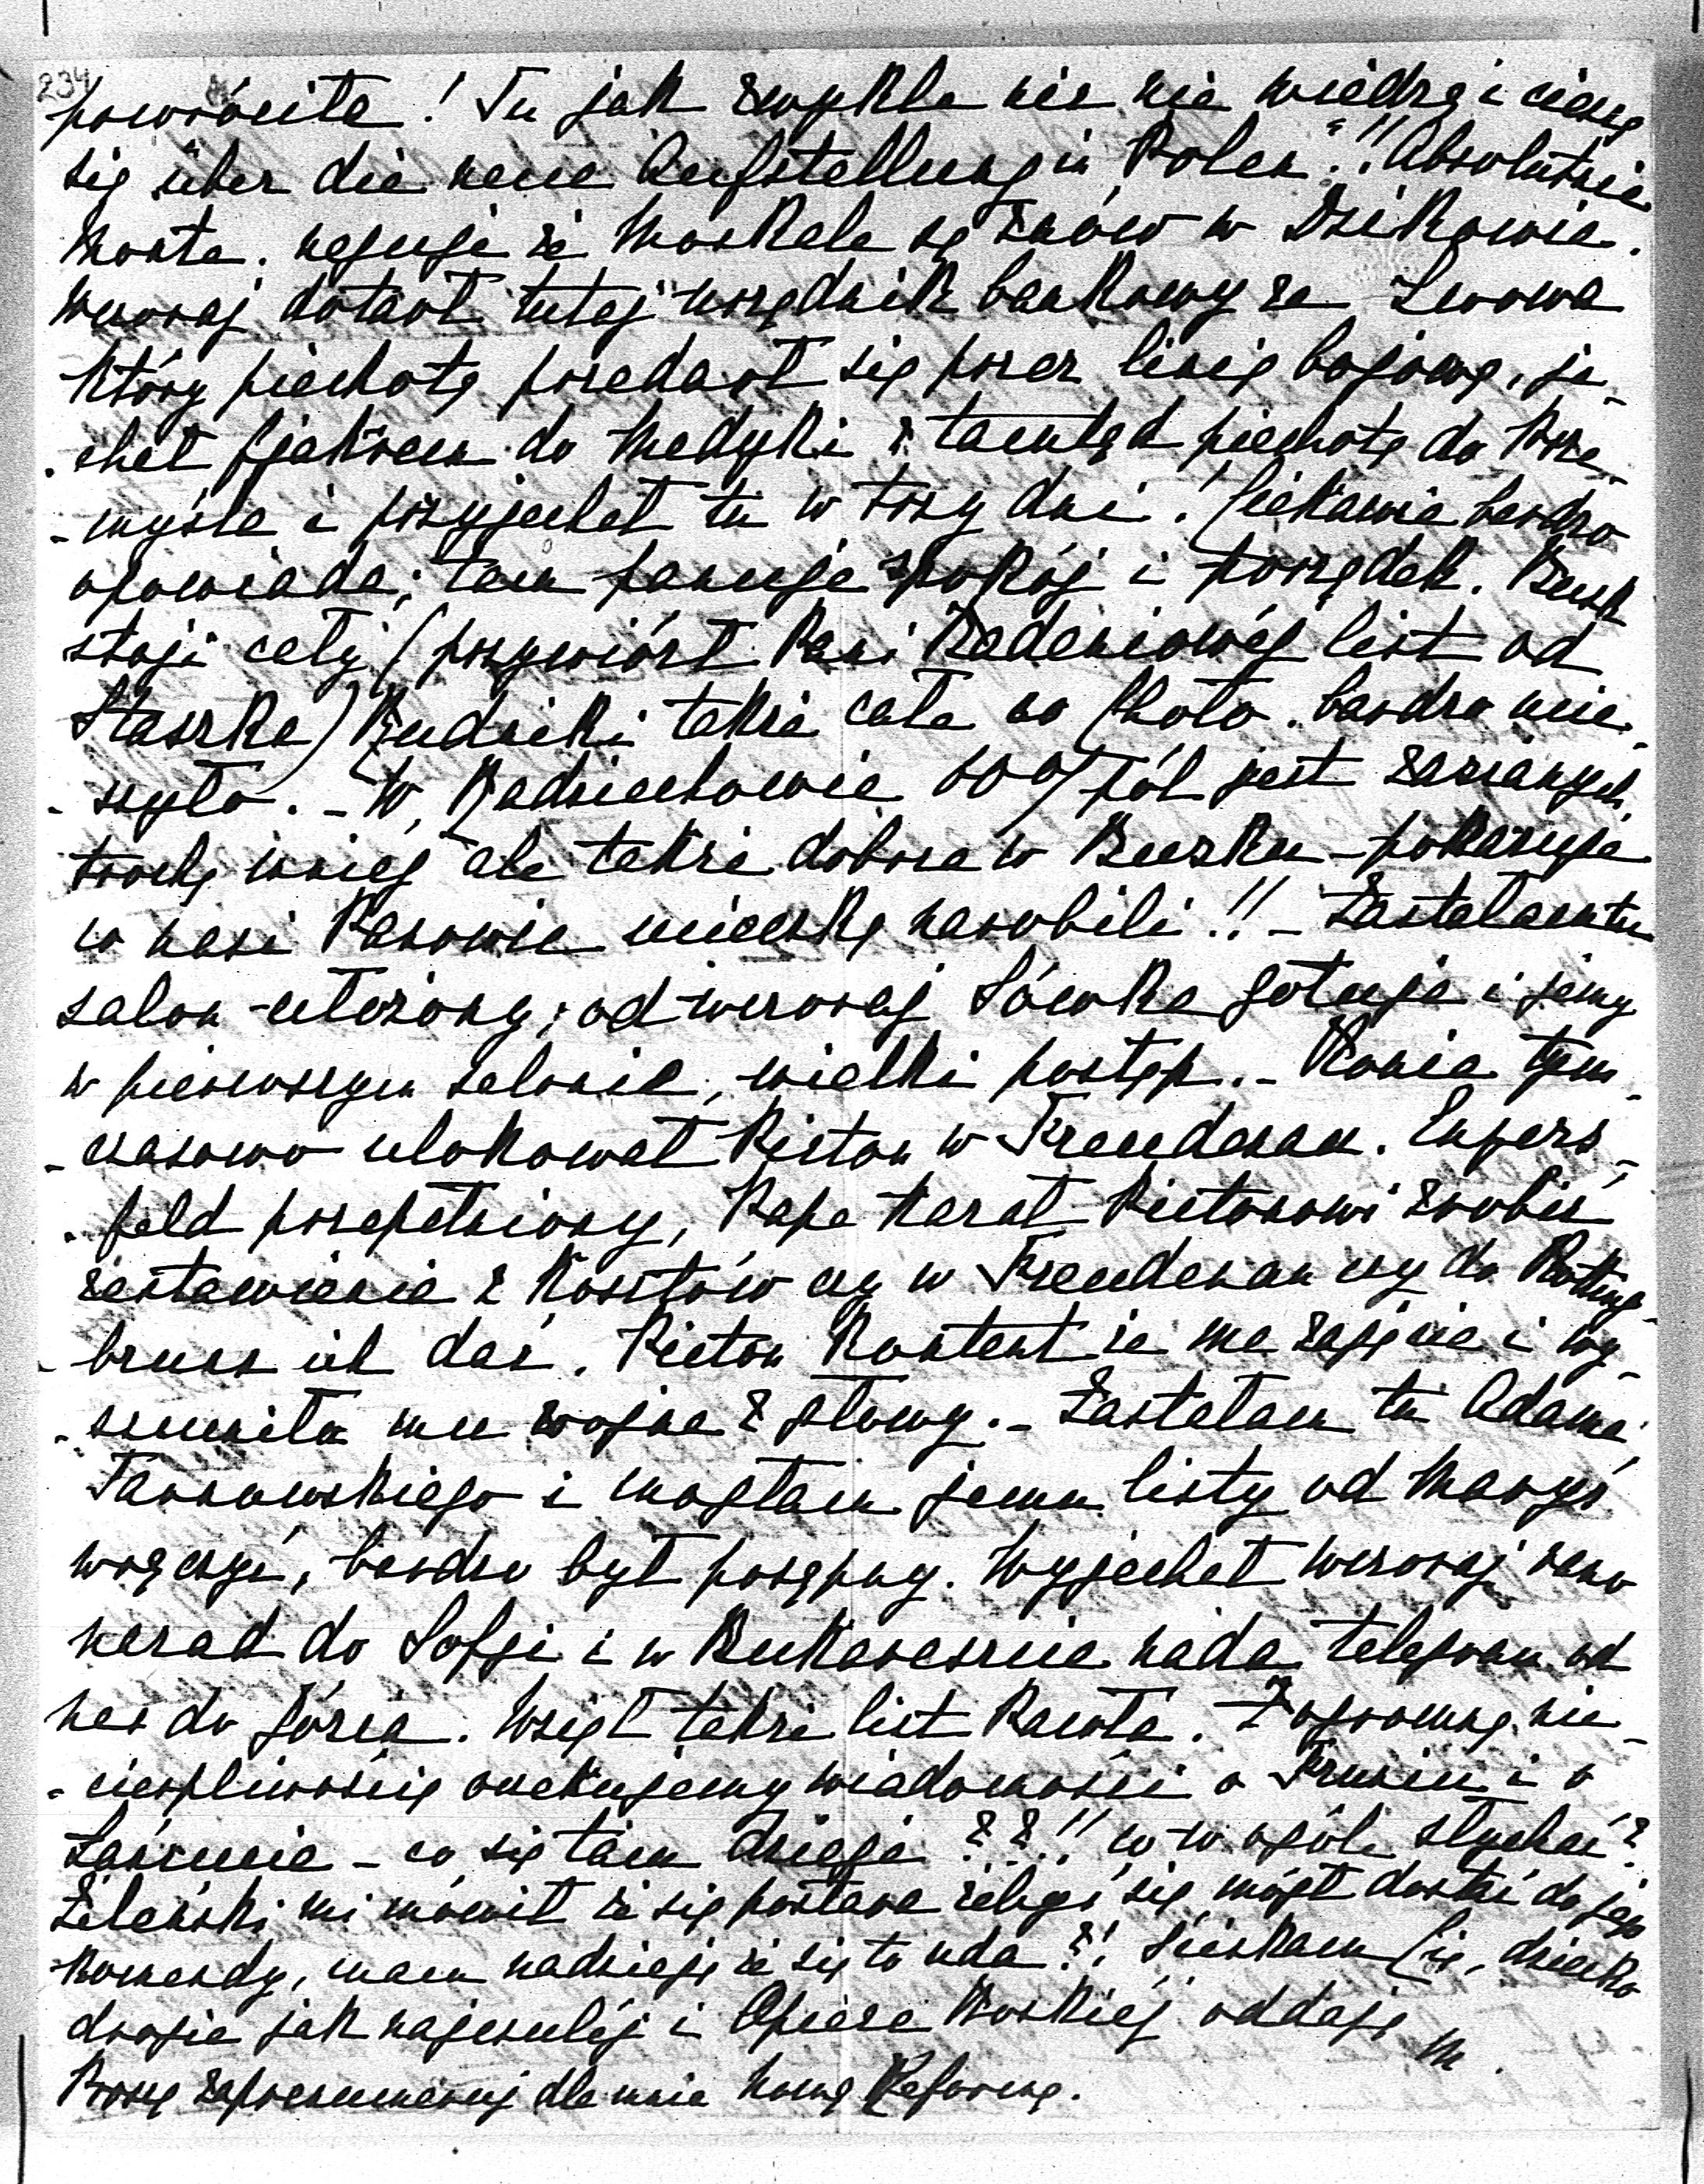 234
powrócite! Tu jak zwykle nic nie wiedzą i cieszą
się über die neue Aufstellung in Polen"!! Absolutnie
Monta. neguje że Moskale są znów w Dzikowie.
Wczoraj dotarł tutaj urzędnik bankowy ze Lwowa
który piechotą przedarł się przez linię bojową, je-
-chał fjakrem do Medyki i tamtąd piechotą do Prze-
-myśla i przyjechał tu w trzy dni! Ciekawie bardzo
opowiada; tam panuje spokój i porządek. Busk
stoji cały (przywiózł Pani Badeniowéj list od
Staszka) Rudniki także całe co Choto. bardzo mie-
-szyło. - W Radziechowie 60% pól jest zasianych
trochę mniéj ale także dobrze w Busku - pokazuje
co nasi Panowie ucieczką narobili!! - Zastałam tu
salon ułożony; od wczoraj Sówka gotuje i jemy
w pierwszym salonie, wielki postęp. - Konie tym-
-czasowo ulokował Picton w Freudenau. Enzers-
-feld przepełniony, Papa kazał Pictonowi zrobić
zestawienie z kosztów czy w Freudenau czy do Rotten-
-brunn ich dać. Picton kontent że ma zajęcie i wy-
-szumiła mu wojna z głowy. - Zastałam tu Adama
Tarnowskiego i mogłam jemu listy od Marysi
wręczyć, bardzo był posępny. Wyjechał wczoraj rano
nazad do Sofji i w Bukareszcie nada telegram od
nas do Józia. Wziął także list Karola. Z ogromną nie-
-cierpliwością oczekujemy wiadomości o Frusiu i o
Łańcucie - co się tam dzieje??!! co w ogóle słychać?
Zeleński mi mówił że się postara żebyś się mógł dostać do jego
komendy, mam nadzieję że się to uda?! Ściskam Cię, dziecko
drogie jak najczuléj i Opiece Boskiéj oddaję
M.
Proszę zaprenumeruj dla mnie Nową Reformę.